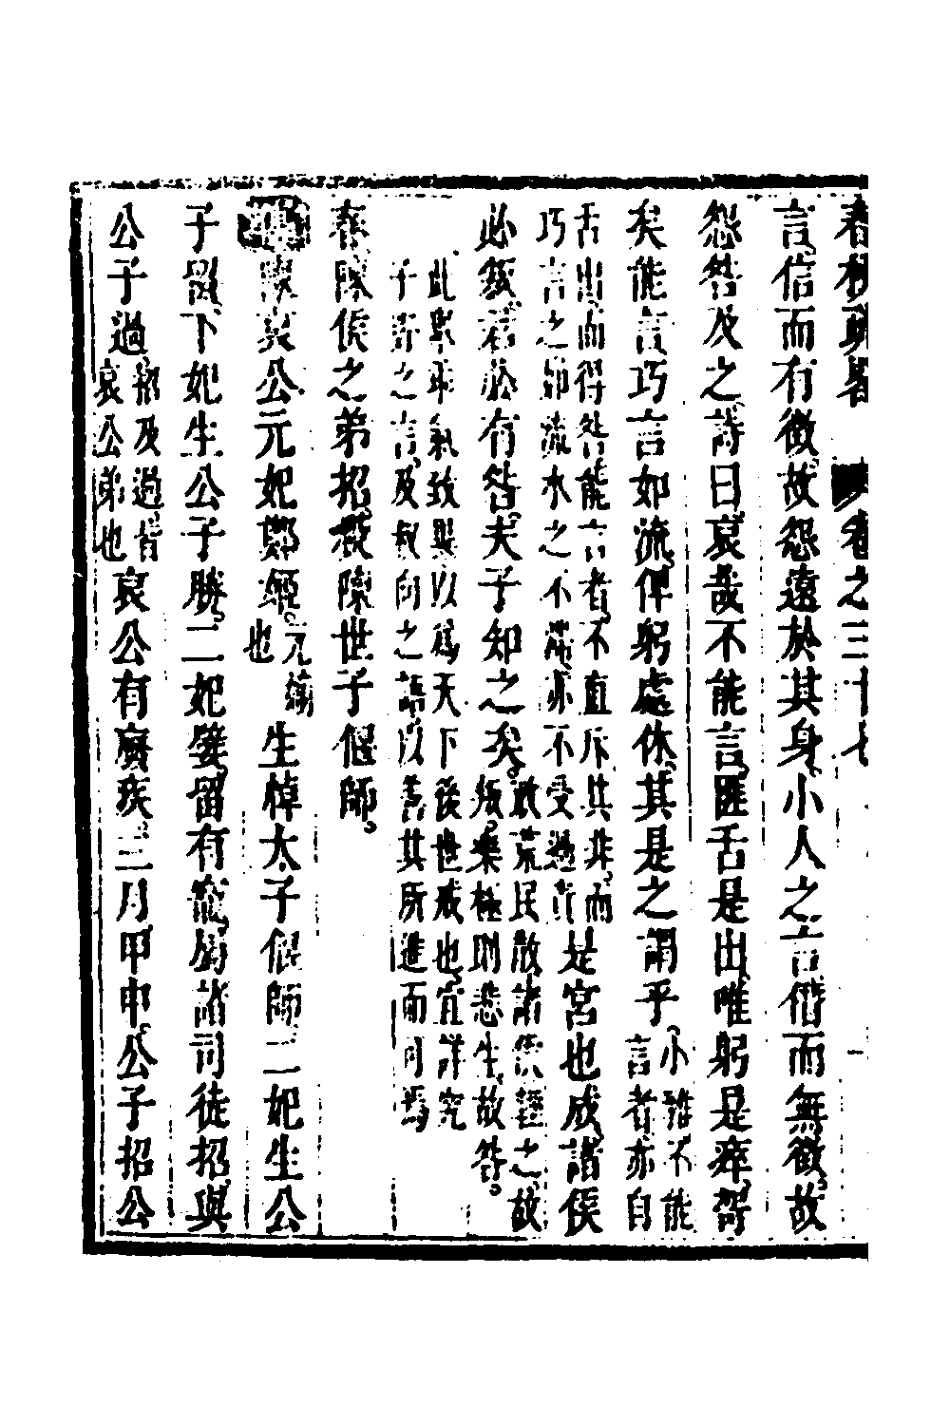 春秋　卷之三十七
言信而有徵故怨遠於其身小人之言僭而無徵故
怨咎及之詩曰哀哉不能言匪舌是出唯躬是瘁哿
矣能言巧言如流俾躬處休其是之謂乎
小雅不能
言者亦自
舌出而得咎能言者不直斥其非而
巧言之如流水之不滯亦不受過責
是宮也成諸侯
必叛君必有咎夫子知之矣
荒民散諸侯之故
叛樂極則悲生故咎
此氣致以為天下後世戒也宜詳究
子之言及叔向之語以善其所進而可
春陳侯之弟招殺陳世子偃師
陳哀公元妃鄭姬
元
也
生悼大子偃師二妃生公
子留下妃生公子勝二妃嬖留有寵屬諸司徒招與
公子過
招及過皆
哀公弟也
哀公有廢疾三月甲申公子招公